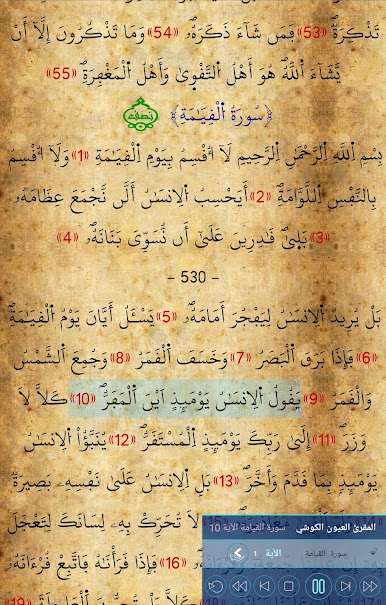 تَذْكِرَةٌ ﴿53﴾ فَمَن شَآءَ ذَكَرَهُۥ ﴿54﴾ وَمَا تَذْكُرُونَ إِلَّآ أَنْ
يَّشَآءَ اَ۬للَّهُ هُوَ أَهْلُ اُ۬لتَّقْو۪يٰ وَأَهْلُ اُ۬لْمَغْفِرَةِ ﴿55﴾
﴿سُورَةُ اُ۬لْقِيَٰمَةِ﴾ نصف
بِسْمِ اِ۬للَّهِ اِ۬لرَّحْمَٰنِ اِ۬لرَّحِيمِ لَآ أُقْسِمُ بِيَوْمِ اِ۬لْقِيَٰمَةِ ﴿1﴾ وَلَآ أُقْسِمُ
بِالنَّفْسِ اِ۬للَّوَّامَةِ ﴿2﴾ أَيَحْسِبُ اُ۬لِانسَٰنُ أَلَّن نَّجْمَعَ عِظَامَهُۥ
﴿3﴾ بَل۪يٰ قَٰدِرِينَ عَلَيٰٓ أَن نُّسَوِّيَ بَنَانَهُۥ ﴿4﴾
- 530 -
بَلْ يُرِيدُ اُ۬لِانسَٰنُ لِيَفْجُرَ أَمَامَهُۥ ﴿5﴾ يَسْـَٔلُ أَيَّانَ يَوْمُ اُ۬لْقِيَٰمَةِ
﴿6﴾ فَإِذَا بَرَقَ اَ۬لْبَصَرُ ﴿7﴾ وَخَسَفَ اَ۬لْقَمَرُ ﴿8﴾ وَجُمِعَ اَ۬لشَّمْسُ
وَالْقَمَرُ ﴿9﴾ يَقُولُ اُ۬لِانسَٰنُ يَوْمَئِذٍ اَيْنَ اَ۬لْمَفَرُّ ﴿10﴾ كَلَّا لَا
وَزَرَ ﴿11﴾ إِلَيٰ رَبِّكَ يَوْمَئِذٍ اِ۬لْمُسْتَقَرُّ ﴿12﴾ يُنَبَّؤُاْ اُ۬لِانسَٰنُ
يَوْمَئِذِۢ بِمَا قَدَّمَ وَأَخَّرَ ﴿13﴾ بَلِ اِ۬لِانسَٰنُ عَلَيٰ نَفْسِهِۦ بَصِيرَةٌ
لَا تُحَرِّكْ بِهِۦ لِسَانَكَ لِتَعْجَلَ
﴿16﴾ فَإِذَا قَرَأْنَٰهُ فَاتَّبِعْ قُرْءَانَهُۥ
المقرئ العيون الكوشي سورة القيامة الآية 10
سورة القيامة الآية 1